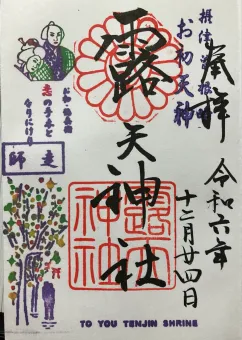 奉拝
摂津 曽根崎
お初天神
露天神社
令和六年
十二月廿四日
恋の手本と
なりにけり
師走
露天
神社
TO YOU TENJIN SHRINE